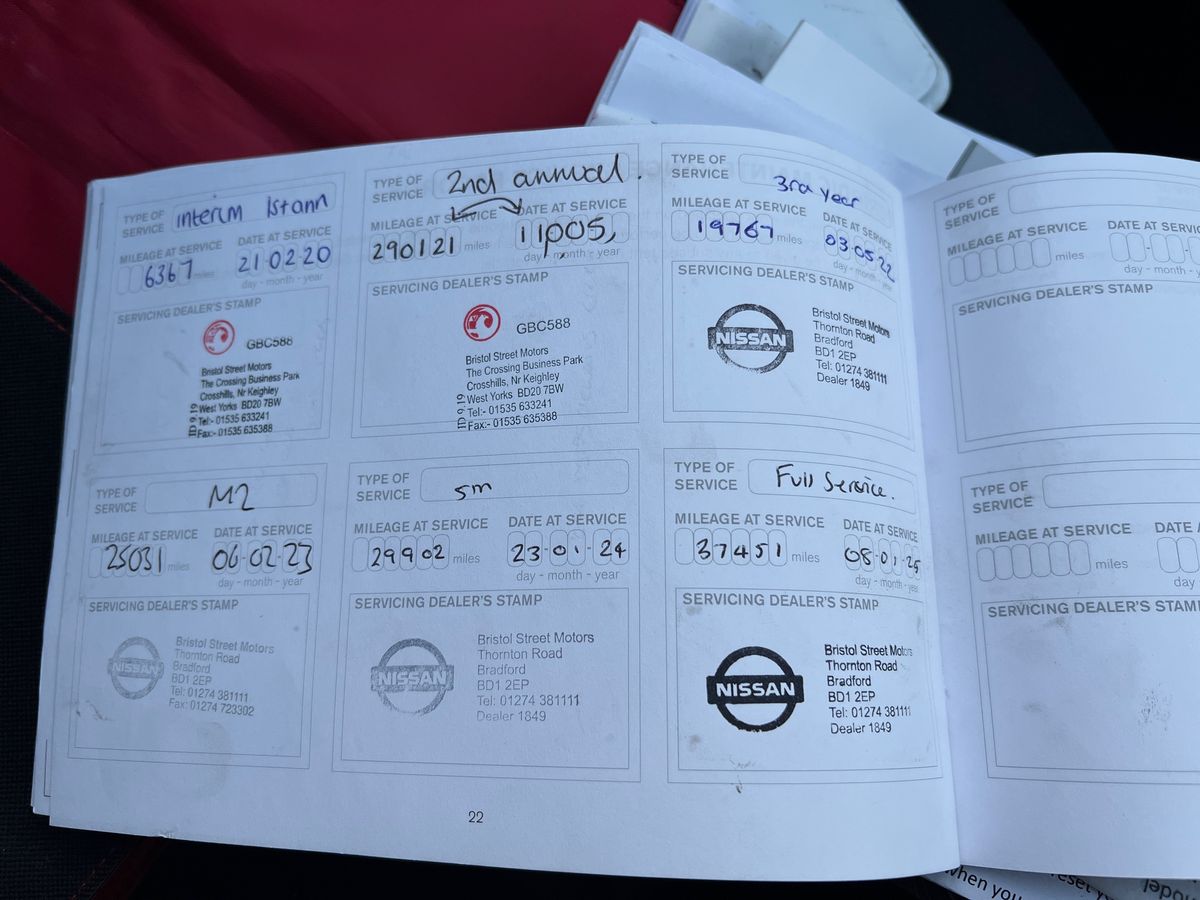 TYPE OF SERVICE interim 1st ann
MILEAGE AT SERVICE DATE AT SERVICE
6367 miles 21 02 20
day - month - year
SERVICING DEALER'S STAMP
GBC588
Bristol Street Motors
The Crossing Business Park
Crosshills, Nr Keighley
West Yorks BD20 7BW
Tel:- 01535 633241
Fax:- 01535 635388
ID 9 19
TYPE OF SERVICE 2nd annual.
MILEAGE AT SERVICE DATE AT SERVICE
290121 miles 11905,
day - month - year
SERVICING DEALER'S STAMP
GBC588
Bristol Street Motors
The Crossing Business Park
Crosshills, Nr Keighley
West Yorks BD20 7BW
Tel:- 01535 633241
Fax:- 01535 635388
ID 9 19
TYPE OF SERVICE 3rd year
MILEAGE AT SERVICE DATE AT SERVICE
19767 miles 03-05-22
day - month - year
SERVICING DEALER'S STAMP
NISSAN
Bristol Street Motors
Thornton Road
Bradford
BD1 2EP
Tel: 01274 381111
Dealer 1849
TYPE OF SERVICE M2
MILEAGE AT SERVICE DATE AT SERVICE
25031 miles 06-02-23
day - month - year
SERVICING DEALER'S STAMP
NISSAN
Bristol Street Motors
Thornton Road
Bradford
BD1 2EP
Tel: 01274 381111
Fax: 01274 723302
TYPE OF SERVICE sm
MILEAGE AT SERVICE DATE AT SERVICE
29902 miles 23-01-24
day - month - year
SERVICING DEALER'S STAMP
NISSAN
Bristol Street Motors
Thornton Road
Bradford
BD1 2EP
Tel: 01274 381111
Dealer 1849
TYPE OF SERVICE Full Service.
MILEAGE AT SERVICE DATE AT SERVICE
37451 miles 08-01-25
day - month - year
SERVICING DEALER'S STAMP
NISSAN
Bristol Street Motors
Thornton Road
Bradford
BD1 2EP
Tel: 01274 381111
Dealer 1849
22
TYPE OF SERVICE
MILEAGE AT SERVICE DATE AT SERVIC
miles
day - month - year
SERVICING DEALER'S STAMP
TYPE OF SERVICE
MILEAGE AT SERVICE DATE A
miles day
SERVICING DEALER'S STAM
when you
reset y
model